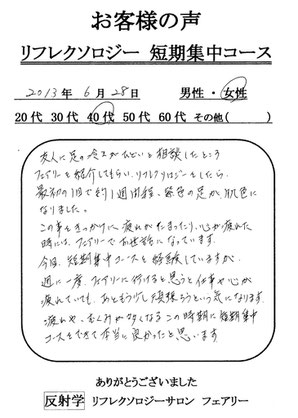 お客様の声
リフレクソロジー 短期集中コース
2013年 6月 28日 男性・女性
20代 30代 40代 50代 60代 その他( )
友人に足の冷えがひどいと相談したところ
フェアリーを紹介してもらい、リフレクソロジーをしたら、
最初の1回で約1週間程、紫色の足が肌色に
なりました。
この事をきっかけに疲れがたまったり、心が疲れた
時には、フェアリーでお世話になっています。
今回、短期集中コースを経験していますが、
週に一度、フェアリーに行けると思うと仕事や心が
疲れていても、あともう少し頑張ろうという気になります。
疲れや、むくみが多くなるこの時期に短期集中
コースをできて本当に良かったと思います
ありがとうございました
反射学 リフレクソロジーサロン フェアリー